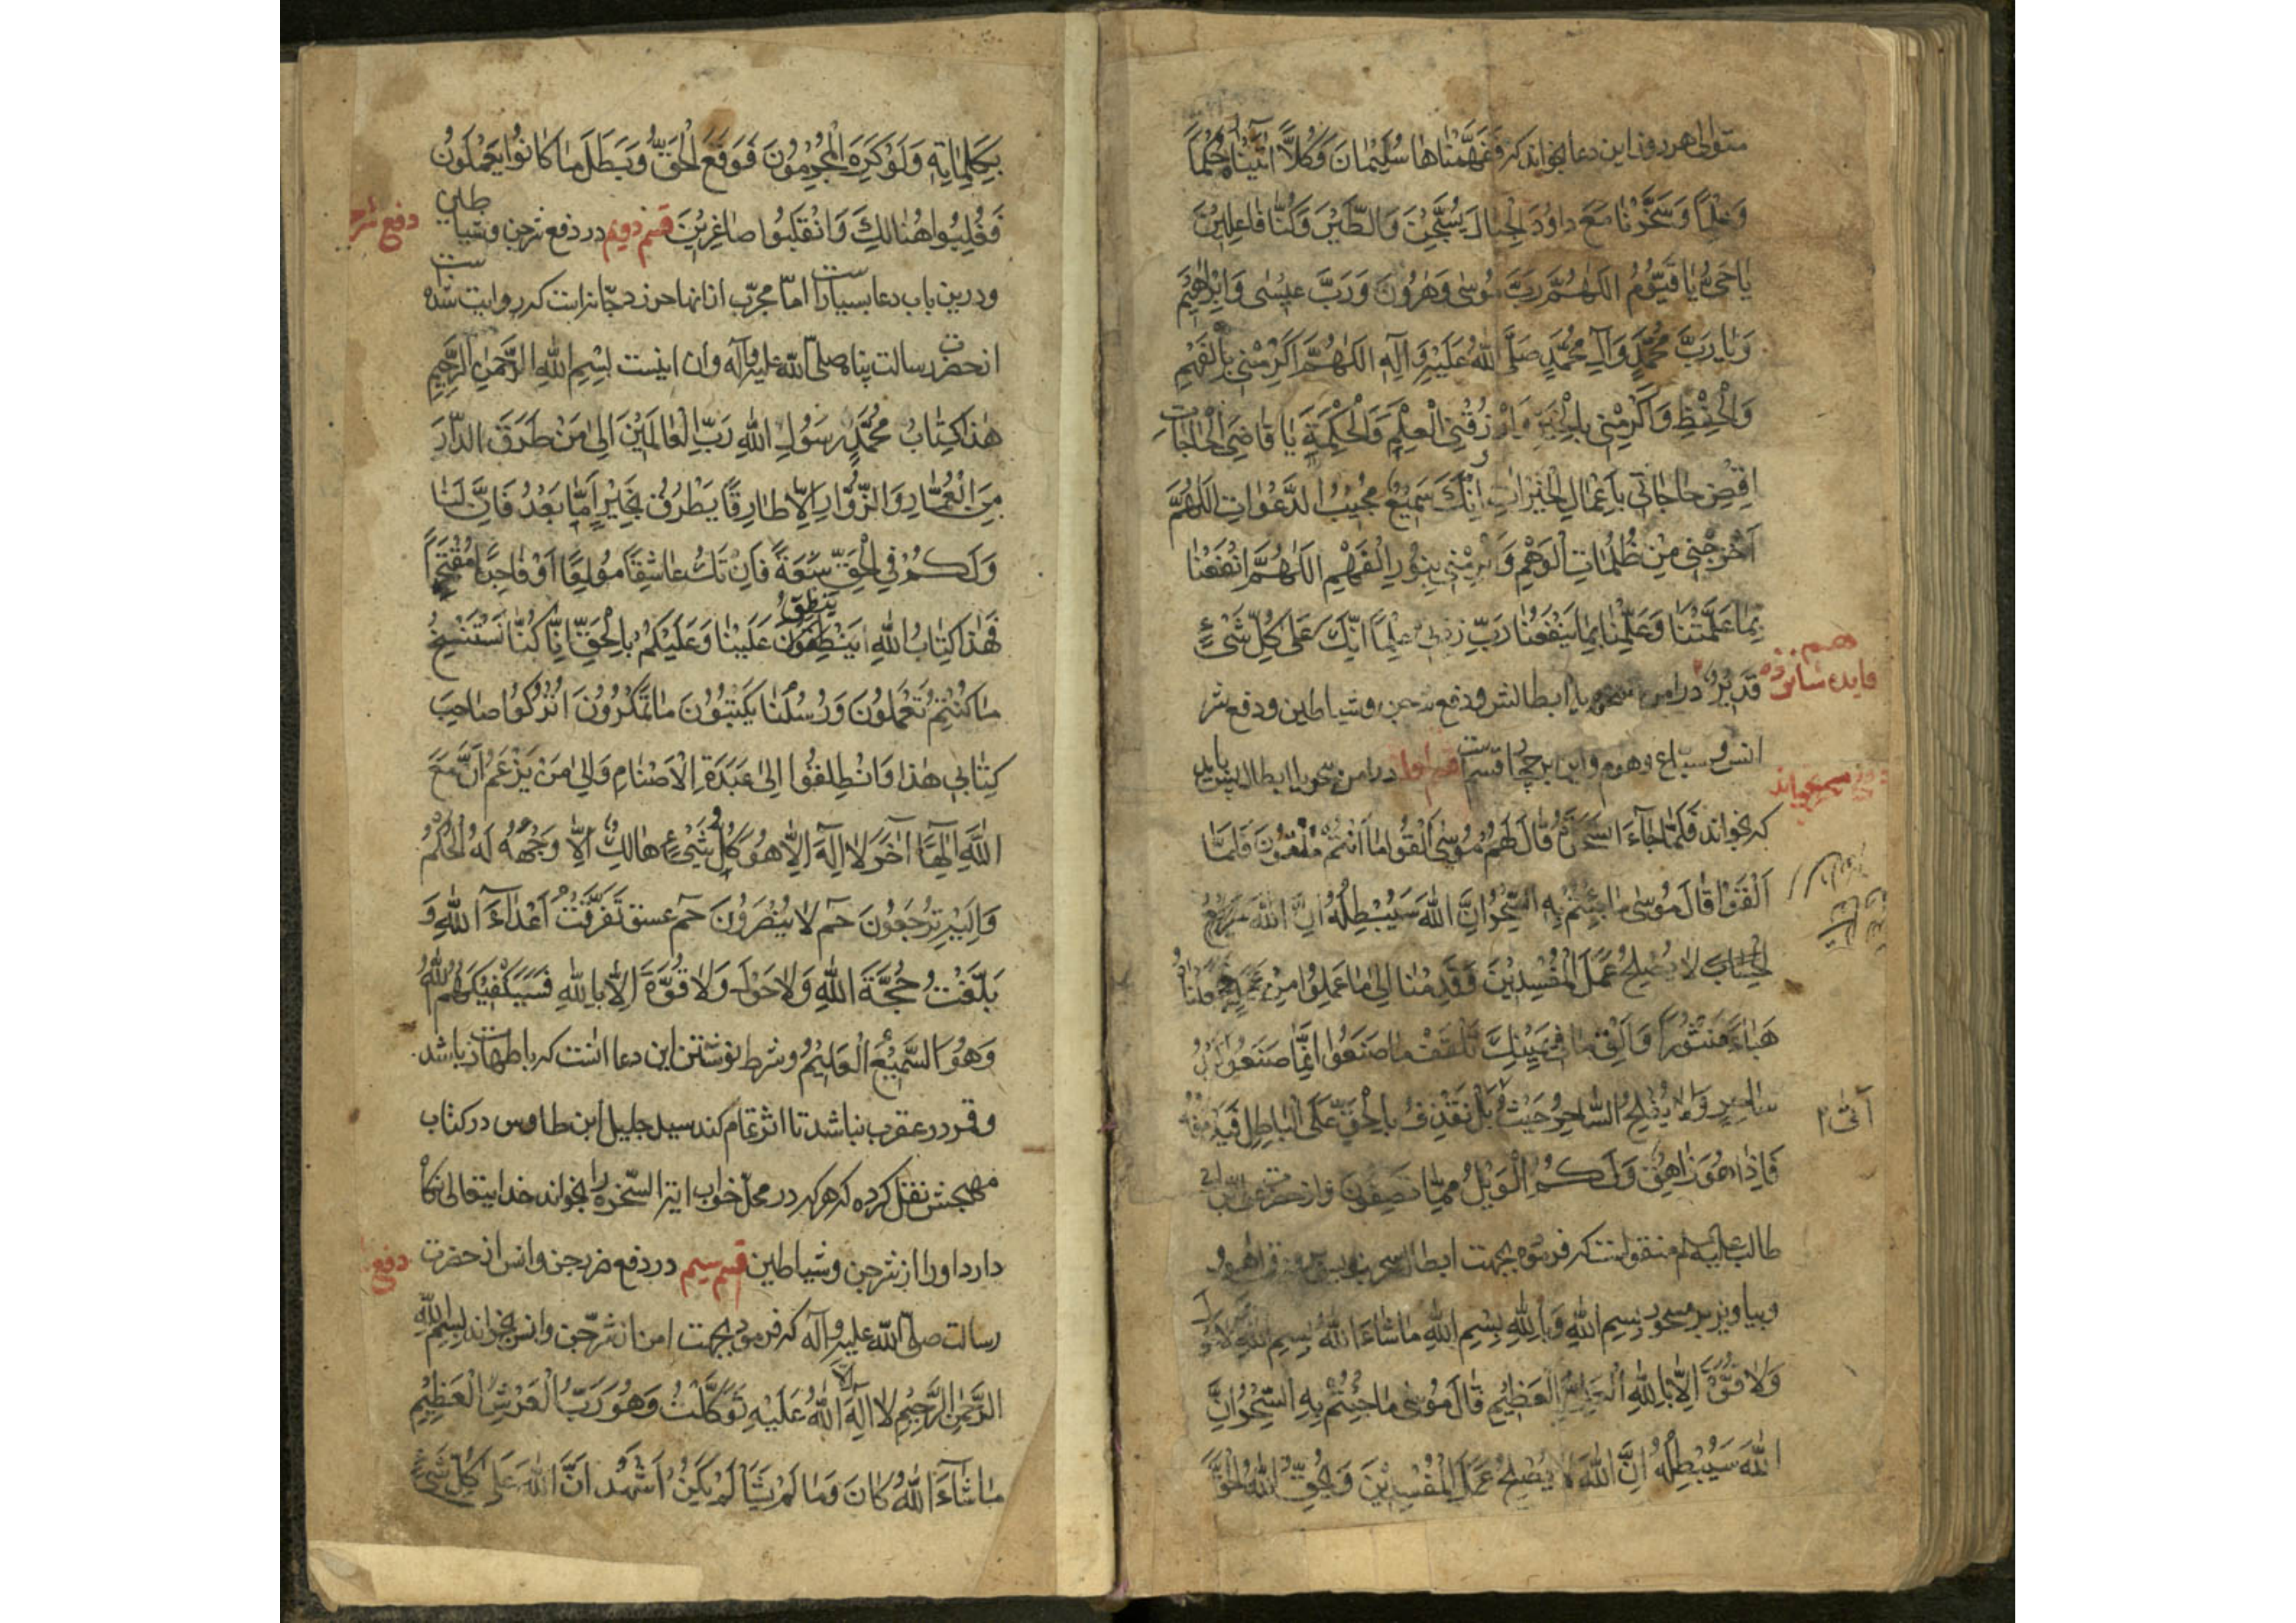 متوالی هر روز این دعا بخواند که فَفَهَّمْنَاهَا سُلَیْمَانَ وَکُلّاً آتَیْنَاهُ حُکْماً
وَعِلْماً وَسَخَّرْنَا مَعَ دَاوُدَ الْجِبَالَ یُسَبِّحْنَ وَالطَّیْرَ وَکُنَّا فَاعِلِیْنَ
یَا حَیُّ یَا قَیُّوْمُ اَللّٰهُمَّ رَبَّ مُوْسٰی وَهٰرُوْنَ وَرَبَّ عِیْسٰی وَاِبْرَاهِیْمَ
وَیَا رَبَّ مُحَمَّدٍ وَآلِ مُحَمَّدٍ صَلَّی اللّٰهُ عَلَیْهِ وَآلِهِ اَللّٰهُمَّ اَکْرِمْنِی بِالْفَهْمِ
وَالْحِفْظِ وَاَکْرِمْنِی بِالْخَیْرِ وَارْزُقْنِی الْعِلْمَ وَالْحِکْمَةَ یَا قَاضِیَ الْحَاجَاتِ
اِقْضِ حَاجَاتِی بِاَعْمَالِ الْخَیْرَاتِ اِنَّکَ سَمِیْعٌ مُجِیْبُ الدَّعَوَاتِ اَللّٰهُمَّ
اَخْرِجْنِی مِنْ ظُلُمَاتِ الْوَهْمِ وَ بِنُوْرِ الْفَهْمِ اَللّٰهُمَّ انْفَعْنَا
بِمَا عَلَّمْتَنَا وَعَلِّمْنَا بِمَا یَنْفَعُنَا رَبِّ زِدْنِی عِلْماً اِنَّکَ عَلٰی کُلِّ شَیْءٍ
قَدِیْرٌ در امن سحر یا ابطالش ودفع شر جن وشیاطین ودفع شر
فایده شانزدهم
انس وسباع وهوام واین بر چهار قسمست قسم اول در امن سحر یا ابطالش باید
که بخواند فَلَمَّا جَاءَ السَّحَرَةُ قَالَ لَهُمْ مُوْسٰی اَلْقُوا مَا اَنْتُمْ مُلْقُوْنَ فَلَمَّا
اَلْقَوْا قَالَ مُوْسٰی مَا جِئْتُمْ بِهِ السِّحْرُ اِنَّ اللّٰهَ سَیُبْطِلُهُ اِنَّ اللّٰهَ سَرِیْعُ
الْحِسَابِ لَا یُصْلِحُ عَمَلَ الْمُفْسِدِیْنَ وَقَدِمْنَا اِلٰی مَا عَمِلُوا مِنْ عَمَلٍ فَجَعَلْنَاهُ
هَبَاءً مَنْثُوْراً وَاَلْقِ مَا فِی یَمِیْنِکَ تَلْقَفْ مَا صَنَعُوا اِنَّمَا صَنَعُوا کَیْدُ
سَاحِرٍ وَلَا یُفْلِحُ السَّاحِرُ حَیْثُ بَلْ نَقْذِفُ بِالْحَقِّ عَلَی الْبَاطِلِ فَیَدْمَغُهُ
اَتٰی
فَاِذَا هُوَ زَاهِقٌ وَلَکُمُ الْوَیْلُ مِمَّا تَصِفُوْنَ واز حضرت علی بن ابی
طالب علیه السلام منقولست که فرموده بجهت ابطال سحر بنویس
وبیاویز بر مسحور بِسْمِ اللّٰهِ وَبِاللّٰهِ بِسْمِ اللّٰهِ مَا شَاءَ اللّٰهُ بِسْمِ اللّٰهِ لَا حَوْلَ
وَلَا قُوَّةَ اِلَّا بِاللّٰهِ الْعَلِیِّ الْعَظِیْمِ قَالَ مُوْسٰی مَا جِئْتُمْ بِهِ السِّحْرُ اِنَّ
اللّٰهَ سَیُبْطِلُهُ اِنَّ اللّٰهَ لَا یُصْلِحُ عَمَلَ الْمُفْسِدِیْنَ وَیُحِقُّ اللّٰهُ الْحَقَّ
بِکَلِمَاتِهِ وَلَوْ کَرِهَ الْمُجْرِمُوْنَ فَوَقَعَ الْحَقُّ وَبَطَلَ مَا کَانُوْا یَعْمَلُوْنَ
فَغُلِبُوا هُنَالِکَ وَانْقَلَبُوا صَاغِرِیْنَ قسم دویم در دفع شر جن وشیاطین
دفع شر
ودرین باب دعا بسیارست اما مجرب از آنها حرز دجانه است که روایت شده
از حضرت رسالت پناه صلی الله علیه وآله وآن اینست بِسْمِ اللّٰهِ الرَّحْمٰنِ الرَّحِیْمِ
هٰذَا کِتَابُ مُحَمَّدٍ رَسُوْلِ اللّٰهِ رَبِّ الْعَالَمِیْنَ اِلٰی مَنْ طَرَقَ الدَّارَ
مِنَ الْعُمَّارِ وَالزُّوَّارِ اِلَّا طَارِقاً یَطْرُقُ بِخَیْرٍ اَمَّا بَعْدُ فَاِنَّ لَنَا
وَلَکُمْ فِی الْحَقِّ سَعَةً فَاِنْ تَکُ عَاشِقاً مُوْلِعاً اَوْ فَاجِراً مُقْتَحِماً
فَهٰذَا کِتَابُ اللّٰهِ یَنْطِقُ عَلَیْنَا وَعَلَیْکُمْ بِالْحَقِّ اِنَّا کُنَّا نَسْتَنْسِخُ
مَا کُنْتُمْ تَعْمَلُوْنَ وَرُسُلُنَا یَکْتُبُوْنَ مَا تَمْکُرُوْنَ اُتْرُکُوا صَاحِبَ
کِتَابِی هٰذَا وَانْطَلِقُوا اِلٰی عَبَدَةِ الْاَصْنَامِ وَاِلٰی مَنْ یَزْعَمُ اَنَّ مَعَ
اللّٰهِ اِلٰهًا آخَرَ لَا اِلٰهَ اِلَّا هُوَ کُلُّ شَیْءٍ هَالِکٌ اِلَّا وَجْهَهُ لَهُ الْحُکْمُ
وَاِلَیْهِ تُرْجَعُوْنَ حٰمٓ لَا یُنْصَرُوْنَ حٰمٓ عسق تَفَرَّقَتْ اَعْدَاءُ اللّٰهِ وَ
بَلَغَتْ حُجَّةُ اللّٰهِ وَلَا حَوْلَ وَلَا قُوَّةَ اِلَّا بِاللّٰهِ فَسَیَکْفِیْکَهُمُ اللّٰهُ
وَهُوَ السَّمِیْعُ الْعَلِیْمُ وشرط نوشتن این دعا آنست که با طهارت باشد
وقمر در عقرب نباشد تا اثر تمام کند سید جلیل ابن طاوس در کتاب
مهجش نقل کرده که هر که در محل خواب آیة السخره را بخواند خدایتعالی نگاه
دارد او را از شر جن وشیاطین قسم سیم در دفع ضر جن وانس از حضرت
دفع
رسالت صلی الله علیه وآله که فرموده بجهت امن از شر جن وانس بخواند بِسْمِ اللّٰهِ
الرَّحْمٰنِ الرَّحِیْمِ لَا اِلٰهَ اِلَّا اللّٰهُ عَلَیْهِ تَوَکَّلْتُ وَهُوَ رَبُّ الْعَرْشِ الْعَظِیْمِ
مَا شَاءَ اللّٰهُ کَانَ وَمَا لَمْ یَشَأْ لَمْ یَکُنْ اَشْهَدُ اَنَّ اللّٰهَ عَلٰی کُلِّ شَیْءٍ